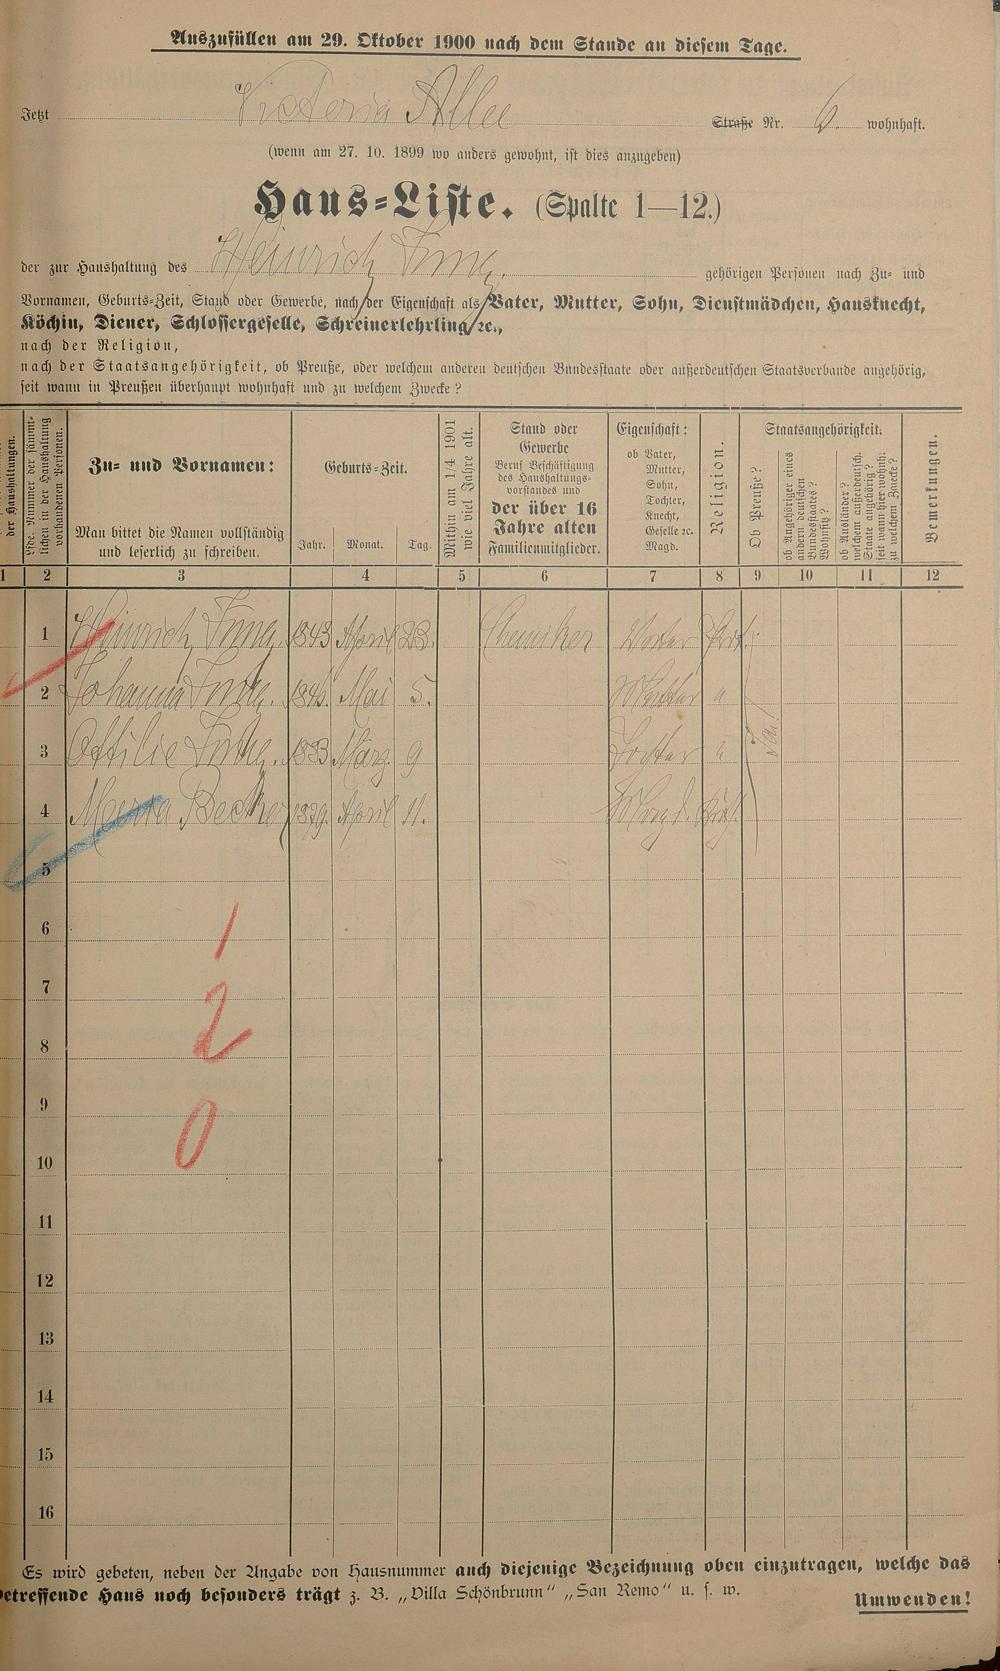 Auszufüllen am 29. Oktober 1900 nach dem Stande an diesem Tage.
Jetzt Victoria Allee Straße Nr. 6. wohnhaft.
(wenn am 27. 10. 1899 wo anders gewohnt, ist dies anzugeben)
Haus-Liste. (Spalte 1—12.)
der zur Haushaltung des Heinrich gehörigen Personen nach Zu- und
Vornamen, Geburts-Zeit, Stand oder Gewerbe, nach der Eigenschaft als Vater, Mutter, Sohn, Dienstmädchen, Hausknecht,
Köchin, Diener, Schlossergeselle, Schreinerlehrling ꝛc.,
nach der Religion,
nach der Staatsangehörigkeit, ob Preuße, oder welchem anderen deutschen Bundesstaate oder außerdeutschen Staatsverbande angehörig,
seit wann in Preußen überhaupt wohnhaft und zu welchem Zwecke?
der Haushaltungen.
Lfde. Nummer der sämmt-
lichen in der Haushaltung
vorhandenen Personen.
Zu- und Vornamen:
Man bittet die Namen vollständig
und leserlich zu schreiben.
Geburts-Zeit.
Jahr. Monat. Tag.
Mithin am 1/4 1901
wie viel Jahre alt.
Stand oder
Gewerbe
Beruf Beschäftigung
des Haushaltungs-
vorstandes und
der über 16
Jahre alten
Familienmitglieder.
Eigenschaft:
ob Vater,
Mutter,
Sohn,
Tochter,
Knecht,
Geselle ꝛc.
Magd.
Religion.
Staatsangehörigkeit.
Ob Preuße?
ob Angehöriger eines
andern deutschen
Bundesstaates?
Wohnsitz?
ob Ausländer?
welchem außerdeutsch.
Staate angehörig?
seit wann hier wohnh.
zu welchem Zwecke?
Bemerkungen.
1 2 3 4 5 6 7 8 9 10 11 12
1 Heinrich 1843 April 23. Chemiker Vater Prot.
2 Johanna 1846. Mai 5. Mutter "
3 Ottilie 1883 März. 9 Tochter "
4 Maria Becker 1879. April 11. Magd.
5
6
1
7
2
8
9
0
10
11
12
13
14
15
16
Es wird gebeten, neben der Angabe von Hausnummer auch diejenige Bezeichnung oben einzutragen, welche das
betreffende Haus noch besonders trägt z. B. „Villa Schönbrunn" „San Remo" u. s. w.
Umwenden!